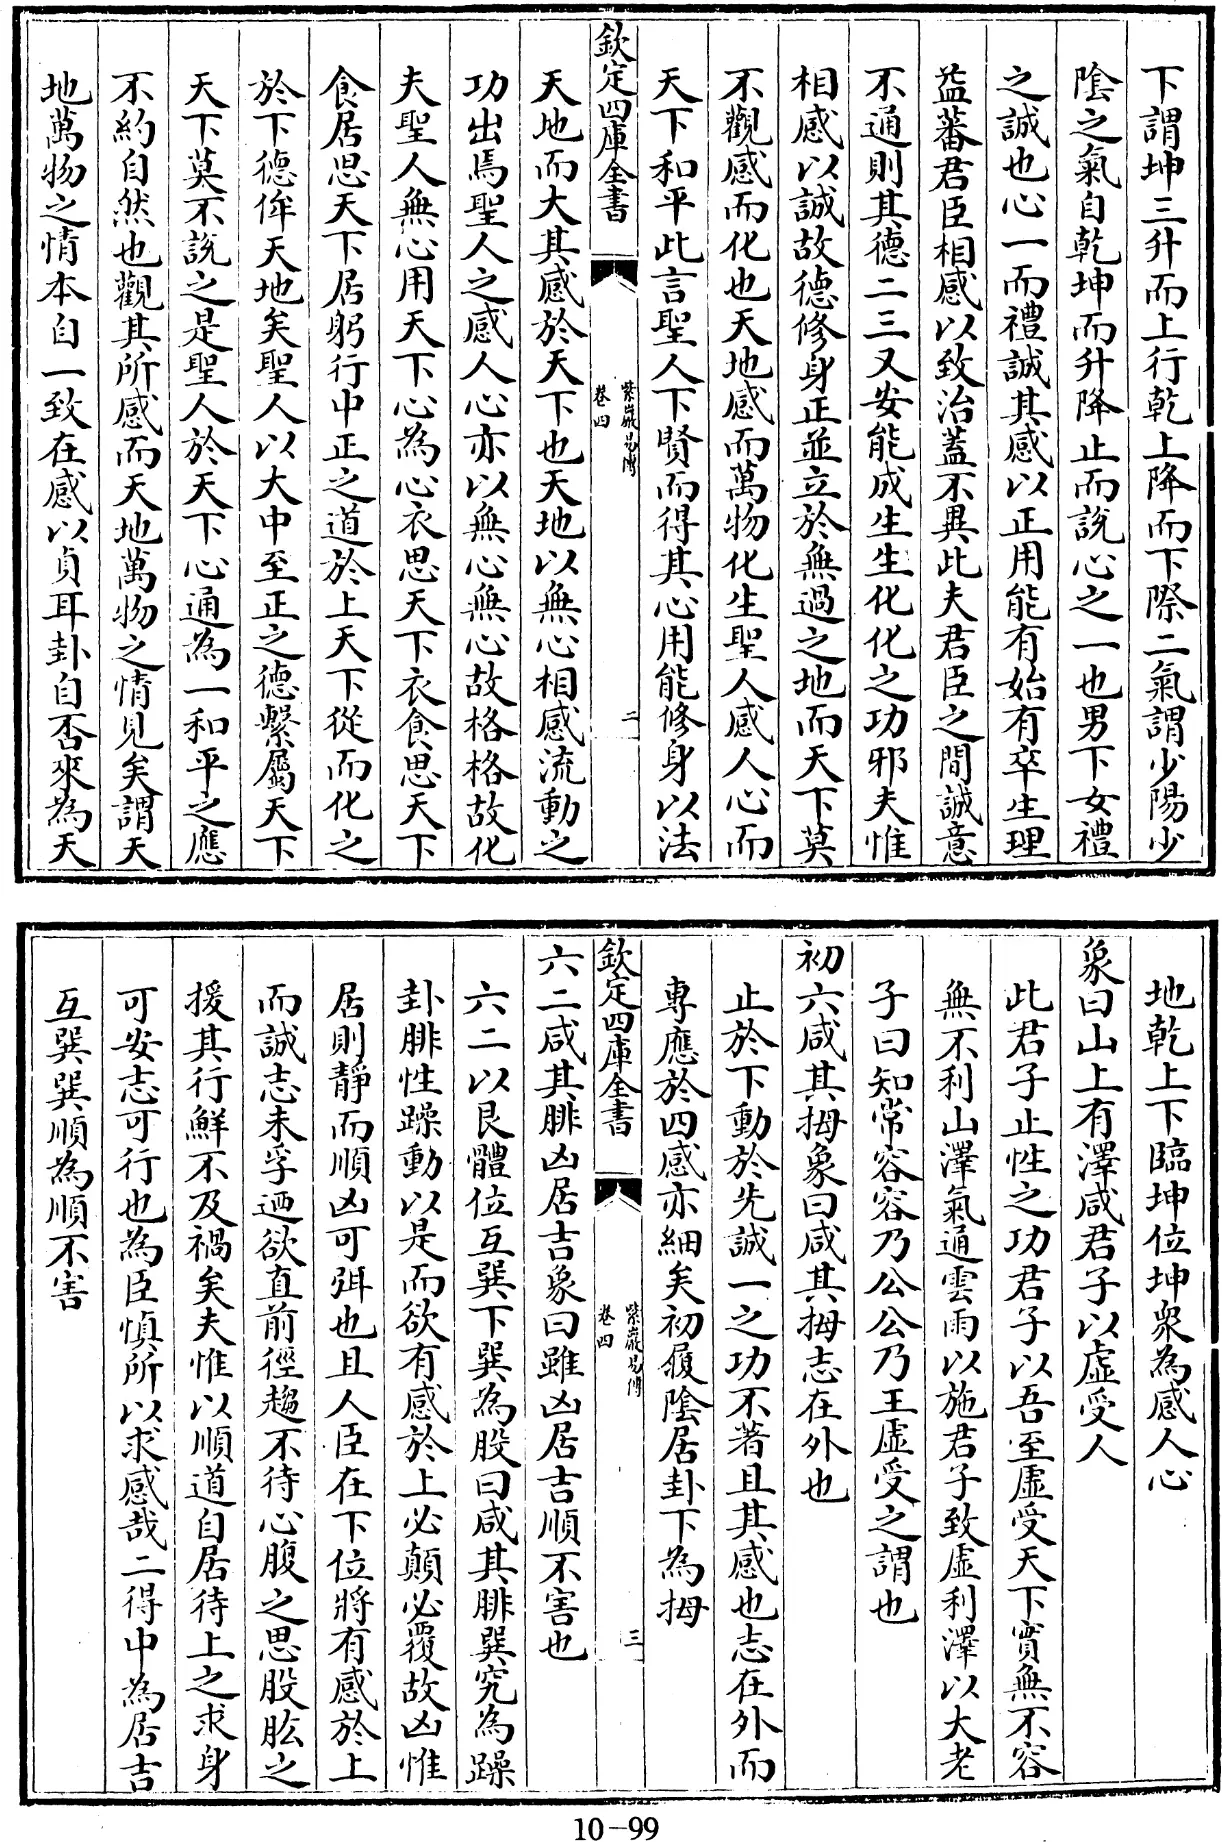 下謂坤三升而上行乾上降而下際二氣謂少陽少
陰之氣自乾坤而升降止而說心之一也男下女禮
之誠也心一而禮誠其感以正用能有始有卒生理
益蕃君臣相感以致治蓋不異此夫君臣之間誠意
不通則其德二三又安能成生生化化之功邪夫惟
相感以誠故德修身正並立於無過之地而天下莫
不觀感而化也天地感而萬物化生聖人感人心而
天下和平此言聖人下賢而得其心用能修身以法
欽定四庫全書
紫巖易傳
卷四
二
天地而大其感於天下也天地以無心相感流動之
功出焉聖人之感人心亦以無心無心故格格故化
夫聖人無心用天下心為心衣思天下衣食思天下
食居思天下居躬行中正之道於上天下從而化之
於下德侔天地矣聖人以大中至正之德繫屬天下
天下莫不說之是聖人於天下心通為一和平之應
不約自然也觀其所感而天地萬物之情見矣謂天
地萬物之情本自一致在感以貞耳卦自否來為天
地乾上下臨坤位坤衆為感人心
象曰山上有澤咸君子以虛受人
此君子止性之功君子以吾至虛受天下實無不容
無不利山澤氣通雲雨以施君子致虛利澤以大老
子曰知常容容乃公公乃王虛受之謂也
初六咸其拇象曰咸其拇志在外也
止於下動於先誠一之功不著且其感也志在外而
專應於四感亦細矣初履陰居卦下為拇
欽定四庫全書
紫巖易傳
卷四
三
六二咸其腓凶居吉象曰雖凶居吉順不害也
六二以艮體位互巽下巽為股曰咸其腓巽究為躁
卦腓性躁動以是而欲有感於上必顛必覆故凶惟
居則靜而順凶可弭也且人臣在下位將有感於上
而誠志未孚迺欲直前徑趨不待心腹之思股肱之
援其行鮮不及禍矣夫惟以順道自居待上之求身
可安志可行也為臣慎所以求感哉二得中為居吉
互巽巽順為順不害
10-99